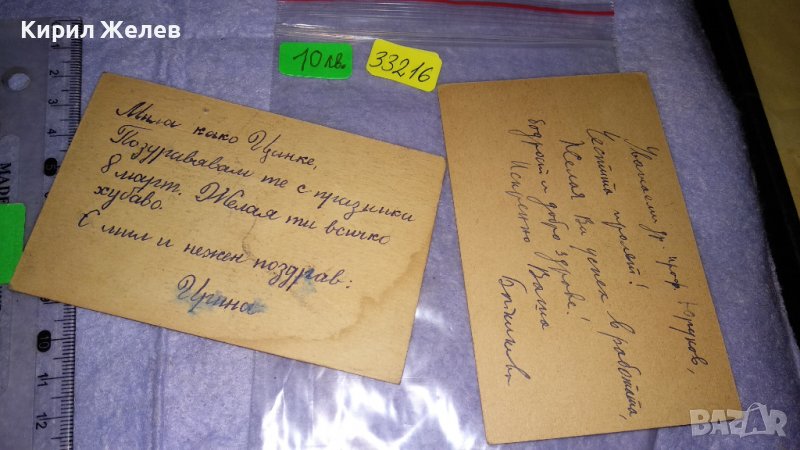 Кирил Желев
10лв.
33216
Мила како Цинке,
Поздравявам те с празника
8 март. Желая ти всичко
хубаво.
С мил и нежен поздрав:
Ирина
Уважаеми др. проф.
Честита пролет!
Желая Ви успех в работата,
бодрост и добро здраве!
Искрено Ваша
MADE
1
2
3
4
5
10
11
12
BAZAR
bazar.bg